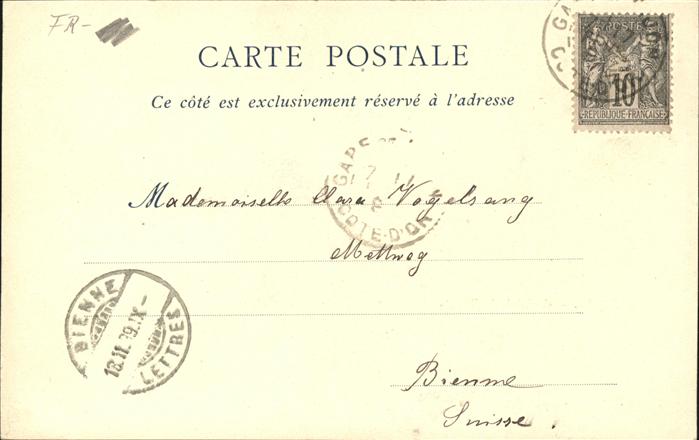 FR-
CARTE POSTALE
Ce côté est exclusivement réservé à l'adresse
POSTE
10
REPUBLIQUE FRANÇAISE
GARE
COTE-D'OR
Mademoiselle Clara Vogelsang
Mettweg
BIENNE
18.II.99.IX-
LETTRES
Bienne
Suisse.